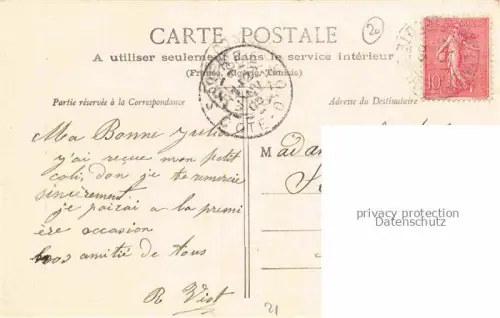 CARTE POSTALE
20
A utiliser seulement dans le service intérieur
(France, Algérie, Tunisie)
10
Partie réservée à la Correspondance
Adresse du Destinataire
CÔTE-D'OR
Ma Bonne Julia
y'ai reçue mon petit
coli, don je te remercie
sincirement
je pairai a la premi
ère occasion
bos amitié de tous
R Viot
Madam
privacy protection
Datenschutz
21